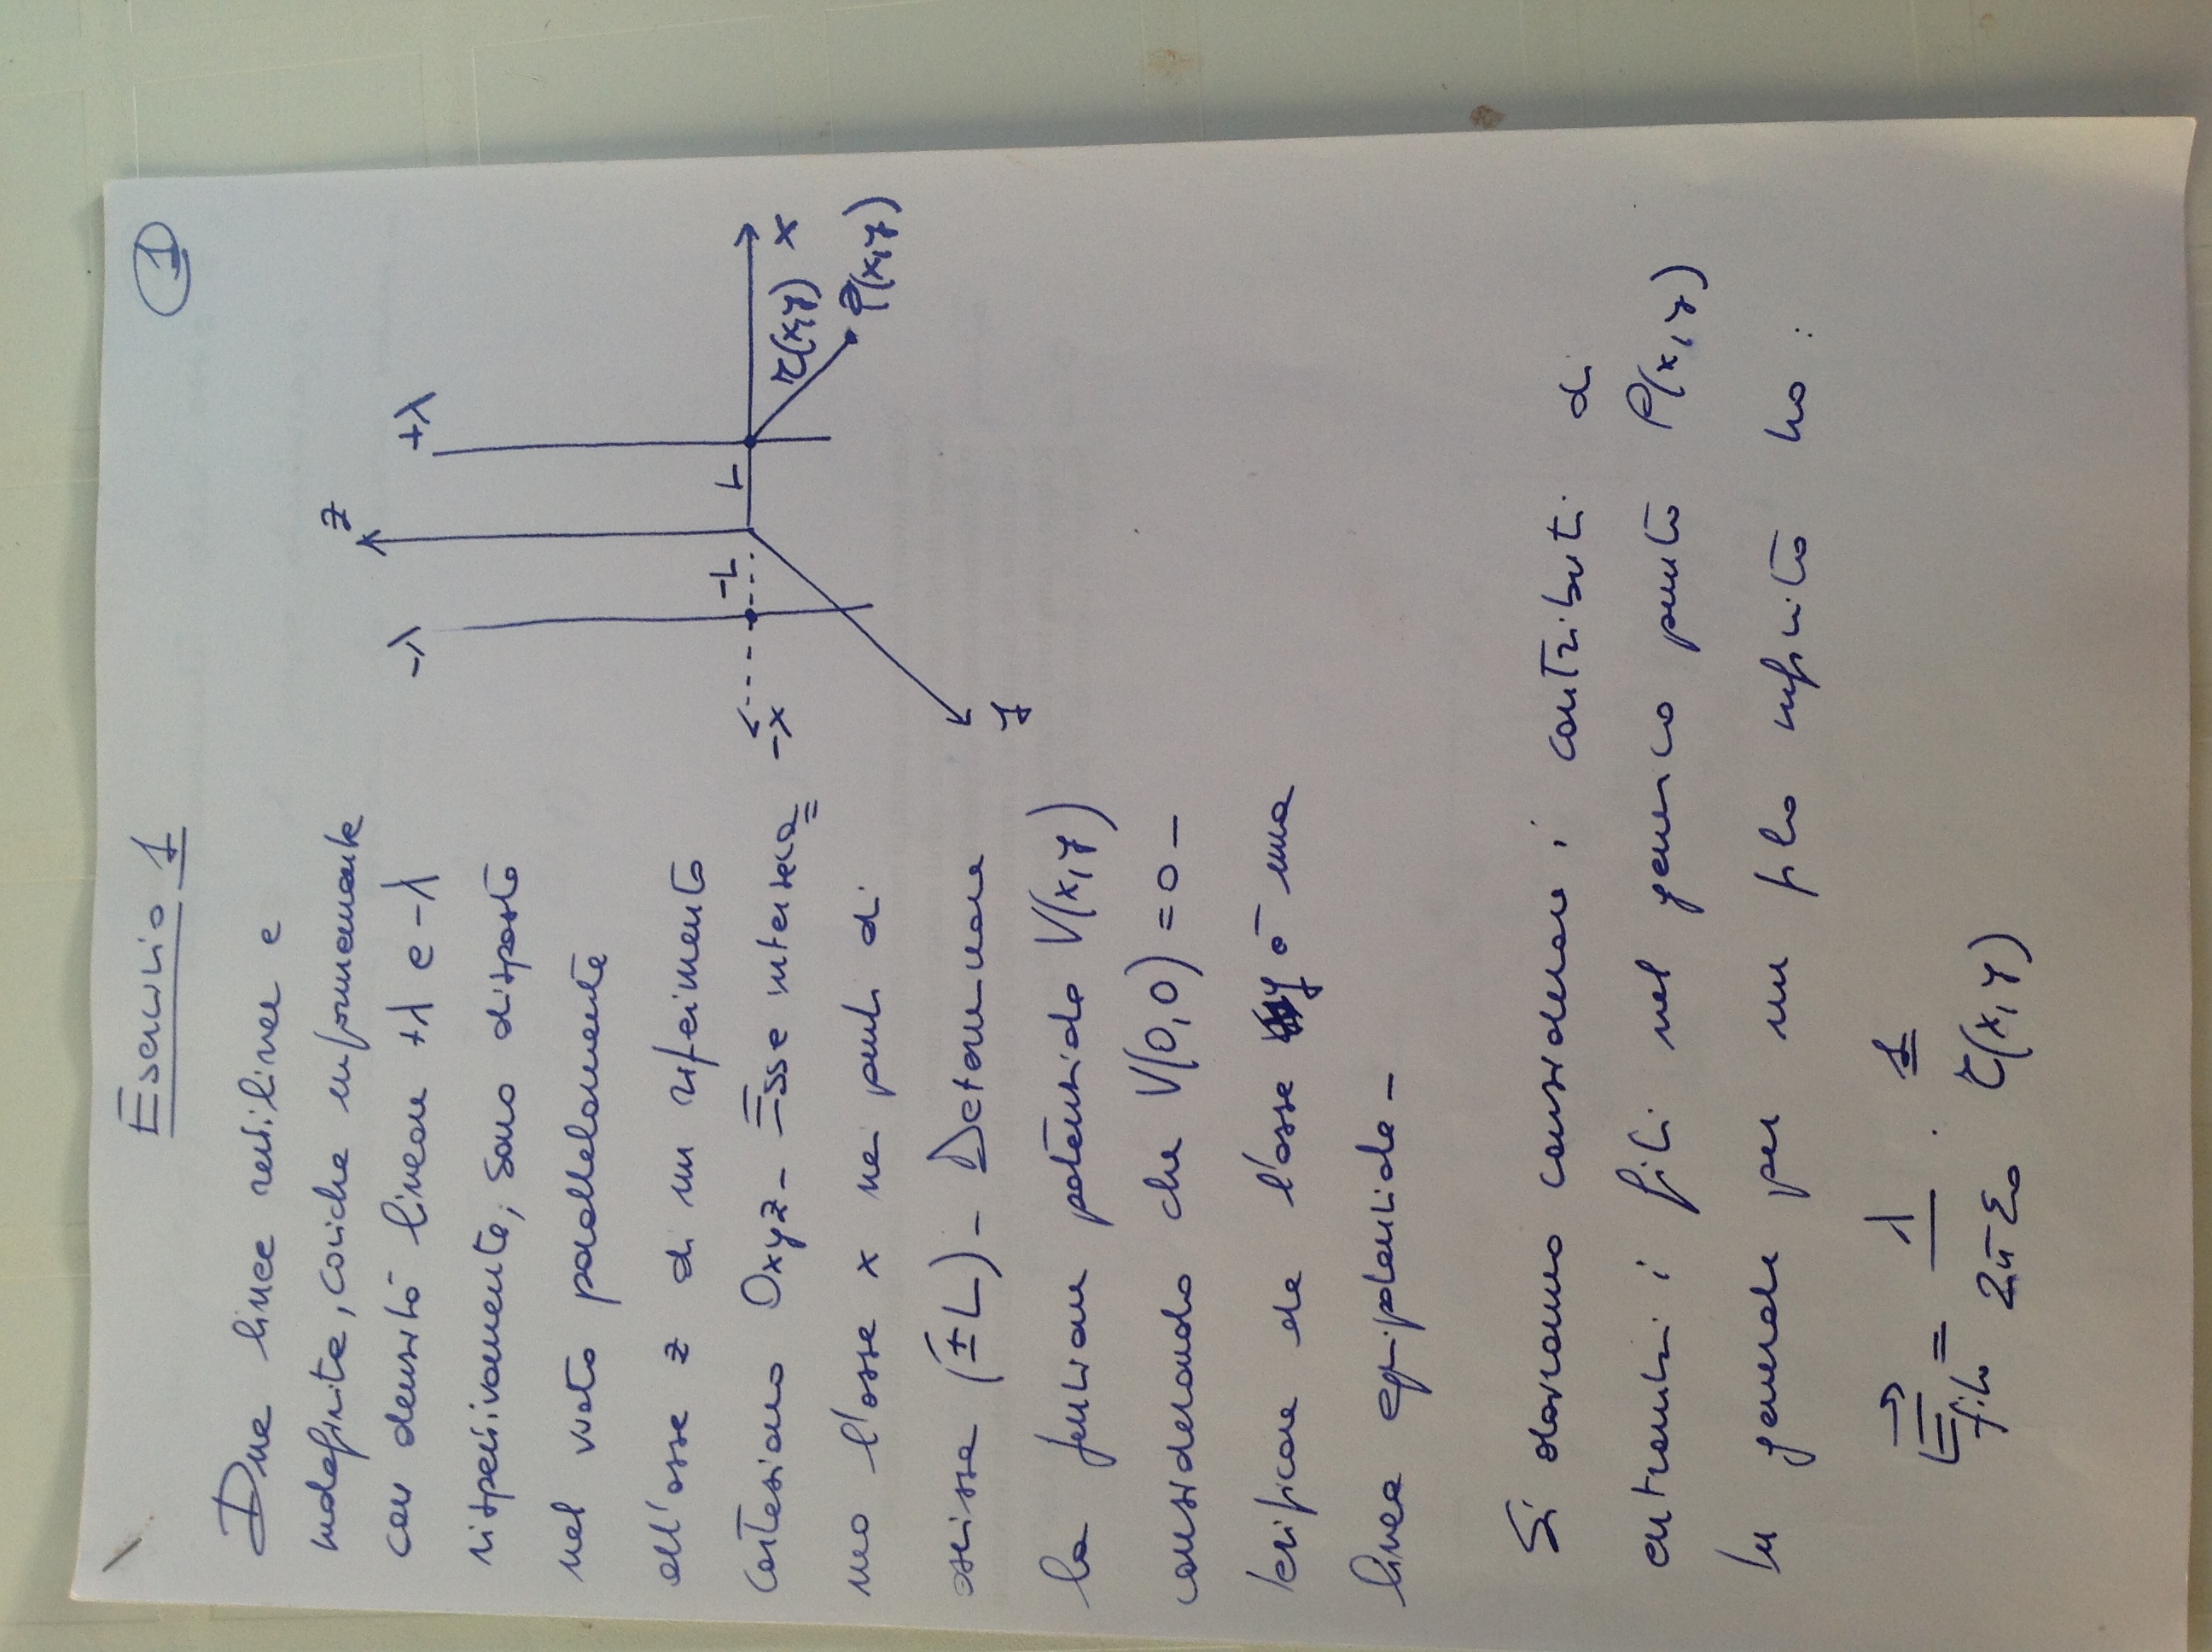 Esercizio 1
1
Due linee rettilinee e
indefinite, cariche uniformemente
con densità lineare +λ e -λ
rispettivamente, sono disposte
nel vuoto parallelamente
all'asse z di un riferimento
cartesiano Oxyz - Esse interseca=
no l'asse x nei punti di
ascissa (±L) - Determinare
la funzione potenziale V(x,y)
considerando che V(0,0) = 0 -
Verificare che l'asse y è una
linea equipotenziale -
z
-λ
+λ
-L
L
-x
x
r(x,y)
P(x,y)
y
Si dovranno considerare i contributi di
entrambi i fili nel generico punto P(x,y)
In generale per un filo infinito ho:
E⃗filo = λ/2πε₀ · 1/r(x,y)